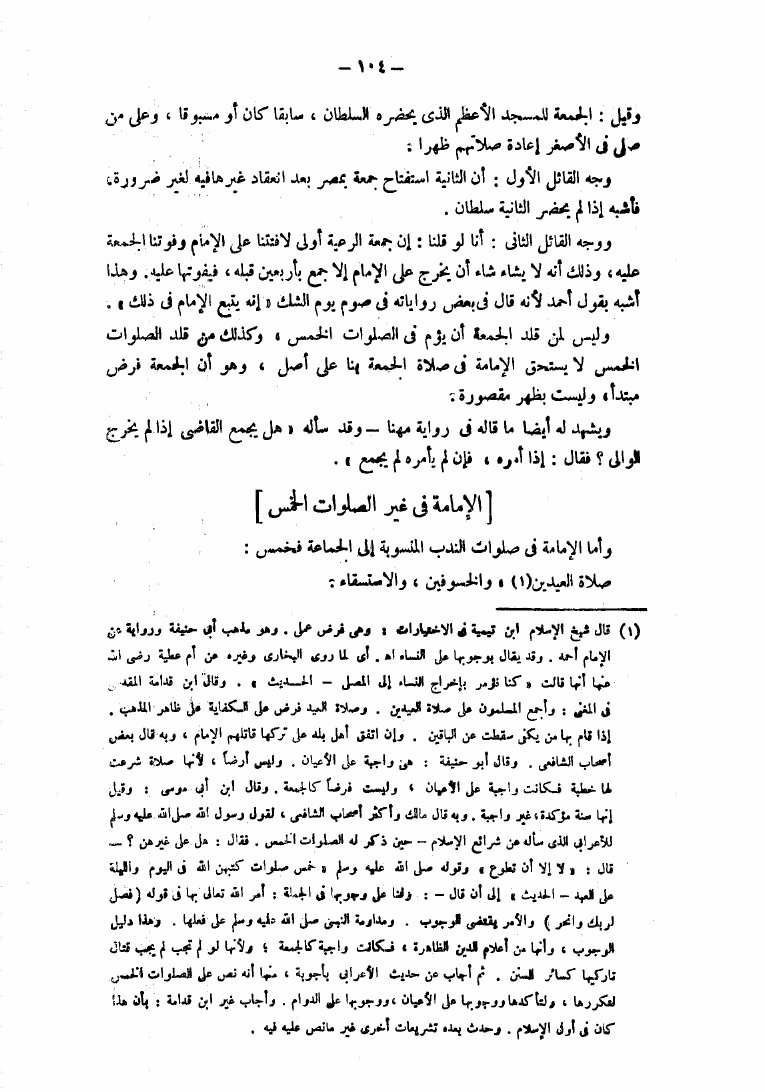 – ١٠٤ –
وقيل : الجمعة للمسجد الأعظم الذى يحضره السلطان ، سابقا كان أو مسبوقا ، وعلى من
صلى فى الأصغر إعادة صلاتهم ظهرا .
وجه القائل الأول : أن الثانية استفتاح جمعة بمصر بعد انعقاد غيرها فيه لغير ضرورة ،
فأشبه إذا لم يحضر الثانية سلطان .
ووجه القائل الثانى : أنا لو قلنا : إن جمعة الرعية أولى لافتتنا على الإمام وفوتنا الجمعة
عليه ، وذلك أنه لا يشاء شاء أن يخرج على الإمام إلا جمع بأربعين قبله ، فيفوتها عليه . وهذا
أشبه بقول أحمد لأنه قال فى بعض رواياته فى صوم يوم الشك « إنه يتبع الإمام فى ذلك » .
وليس لمن قلد الجمعة أن يؤم فى الصلوات الخمس ، وكذلك من قلد الصلوات
الخمس لا يستحق الإمامة فى صلاة الجمعة بنا على أصل ، وهو أن الجمعة فرض
مبتدأ ، وليست بظهر مقصورة .
ويشهد له أيضا ما قاله فى رواية مهنا – وقد سأله « هل يجمع القاضى إذا لم يخرج
الوالى ؟ فقال : إذا أمره ، فإن لم يأمره لم يجمع » .
[ الإمامة فى غير الصلوات الخمس ]
وأما الإمامة فى صلوات الندب المنسوبة إلى الجماعة فخمس :
صلاة العيدين(١) ، والخسوفين ، والاستسقاء .
(١) قال شيخ الإسلام ابن تيمية فى الاختيارات : وهى فرض عمل . وهو مذهب أبى حنيفة ورواية عن
الإمام أحمد . وقد يقال بوجوبها على النساء اهـ . أى لما روى البخارى وغيره عن أم عطية رضى الله
عنها أنها قالت « كنا نؤمر بإخراج النساء إلى المصلى – الحديث » . وقال ابن قدامة المقدسى
فى المغنى : وأجمع المسلمون على صلاة العيدين . وصلاة العيد فرض على الكفاية على ظاهر المذهب .
إذا قام بها من يكفى سقطت عن الباقين . وإن اتفق أهل بلد على تركها قاتلهم الإمام ، وبه قال بعض
أصحاب الشافعى . وقال أبو حنيفة : هى واجبة على الأعيان . وليس أرضاً ، لأنها صلاة شرعت
لها خطبة فكانت واجبة على الأعيان ، وليست فرضاً كالجمعة . وقال ابن أبى موسى : وقيل
إنها سنة مؤكدة ، غير واجبة . وبه قال مالك وأكثر أصحاب الشافعى ، لقول رسول الله صلى الله عليه وسلم
للأعرابى الذى سأله عن شرائع الإسلام – حين ذكر له الصلوات الخمس . فقال : هل على غيرهن ؟ –
قال : « لا إلا أن تطوع » وقوله صلى الله عليه وسلم « خمس صلوات كتبهن الله فى اليوم والليلة
على العبد – الحديث » إلى أن قال – : ولنا على وجوبها فى الجملة : أمر الله تعالى بها فى قوله ( فصل
لربك وانحر ) والأمر يقتضى الوجوب . ومداومة النبى صلى الله عليه وسلم على فعلها . وهذا دليل
الوجوب ، وأنها من أعلام الدين الظاهرة ، فكانت واجبة كالجمعة ؛ ولأنها لو لم تجب لم يجب قتال
تاركيها كسائر السنن . ثم أجاب عن حديث الأعرابى بأجوبة ، منها أنه نص على الصلوات الخمس
لتكررها ، ولتأكدها ووجوبها على الأعيان ، ووجوبها على الدوام . وأجاب غير ابن قدامة : بأن هذا
كان فى أول الإسلام . وحدث بعده تشريعات أخرى غير مانص عليه فيه .